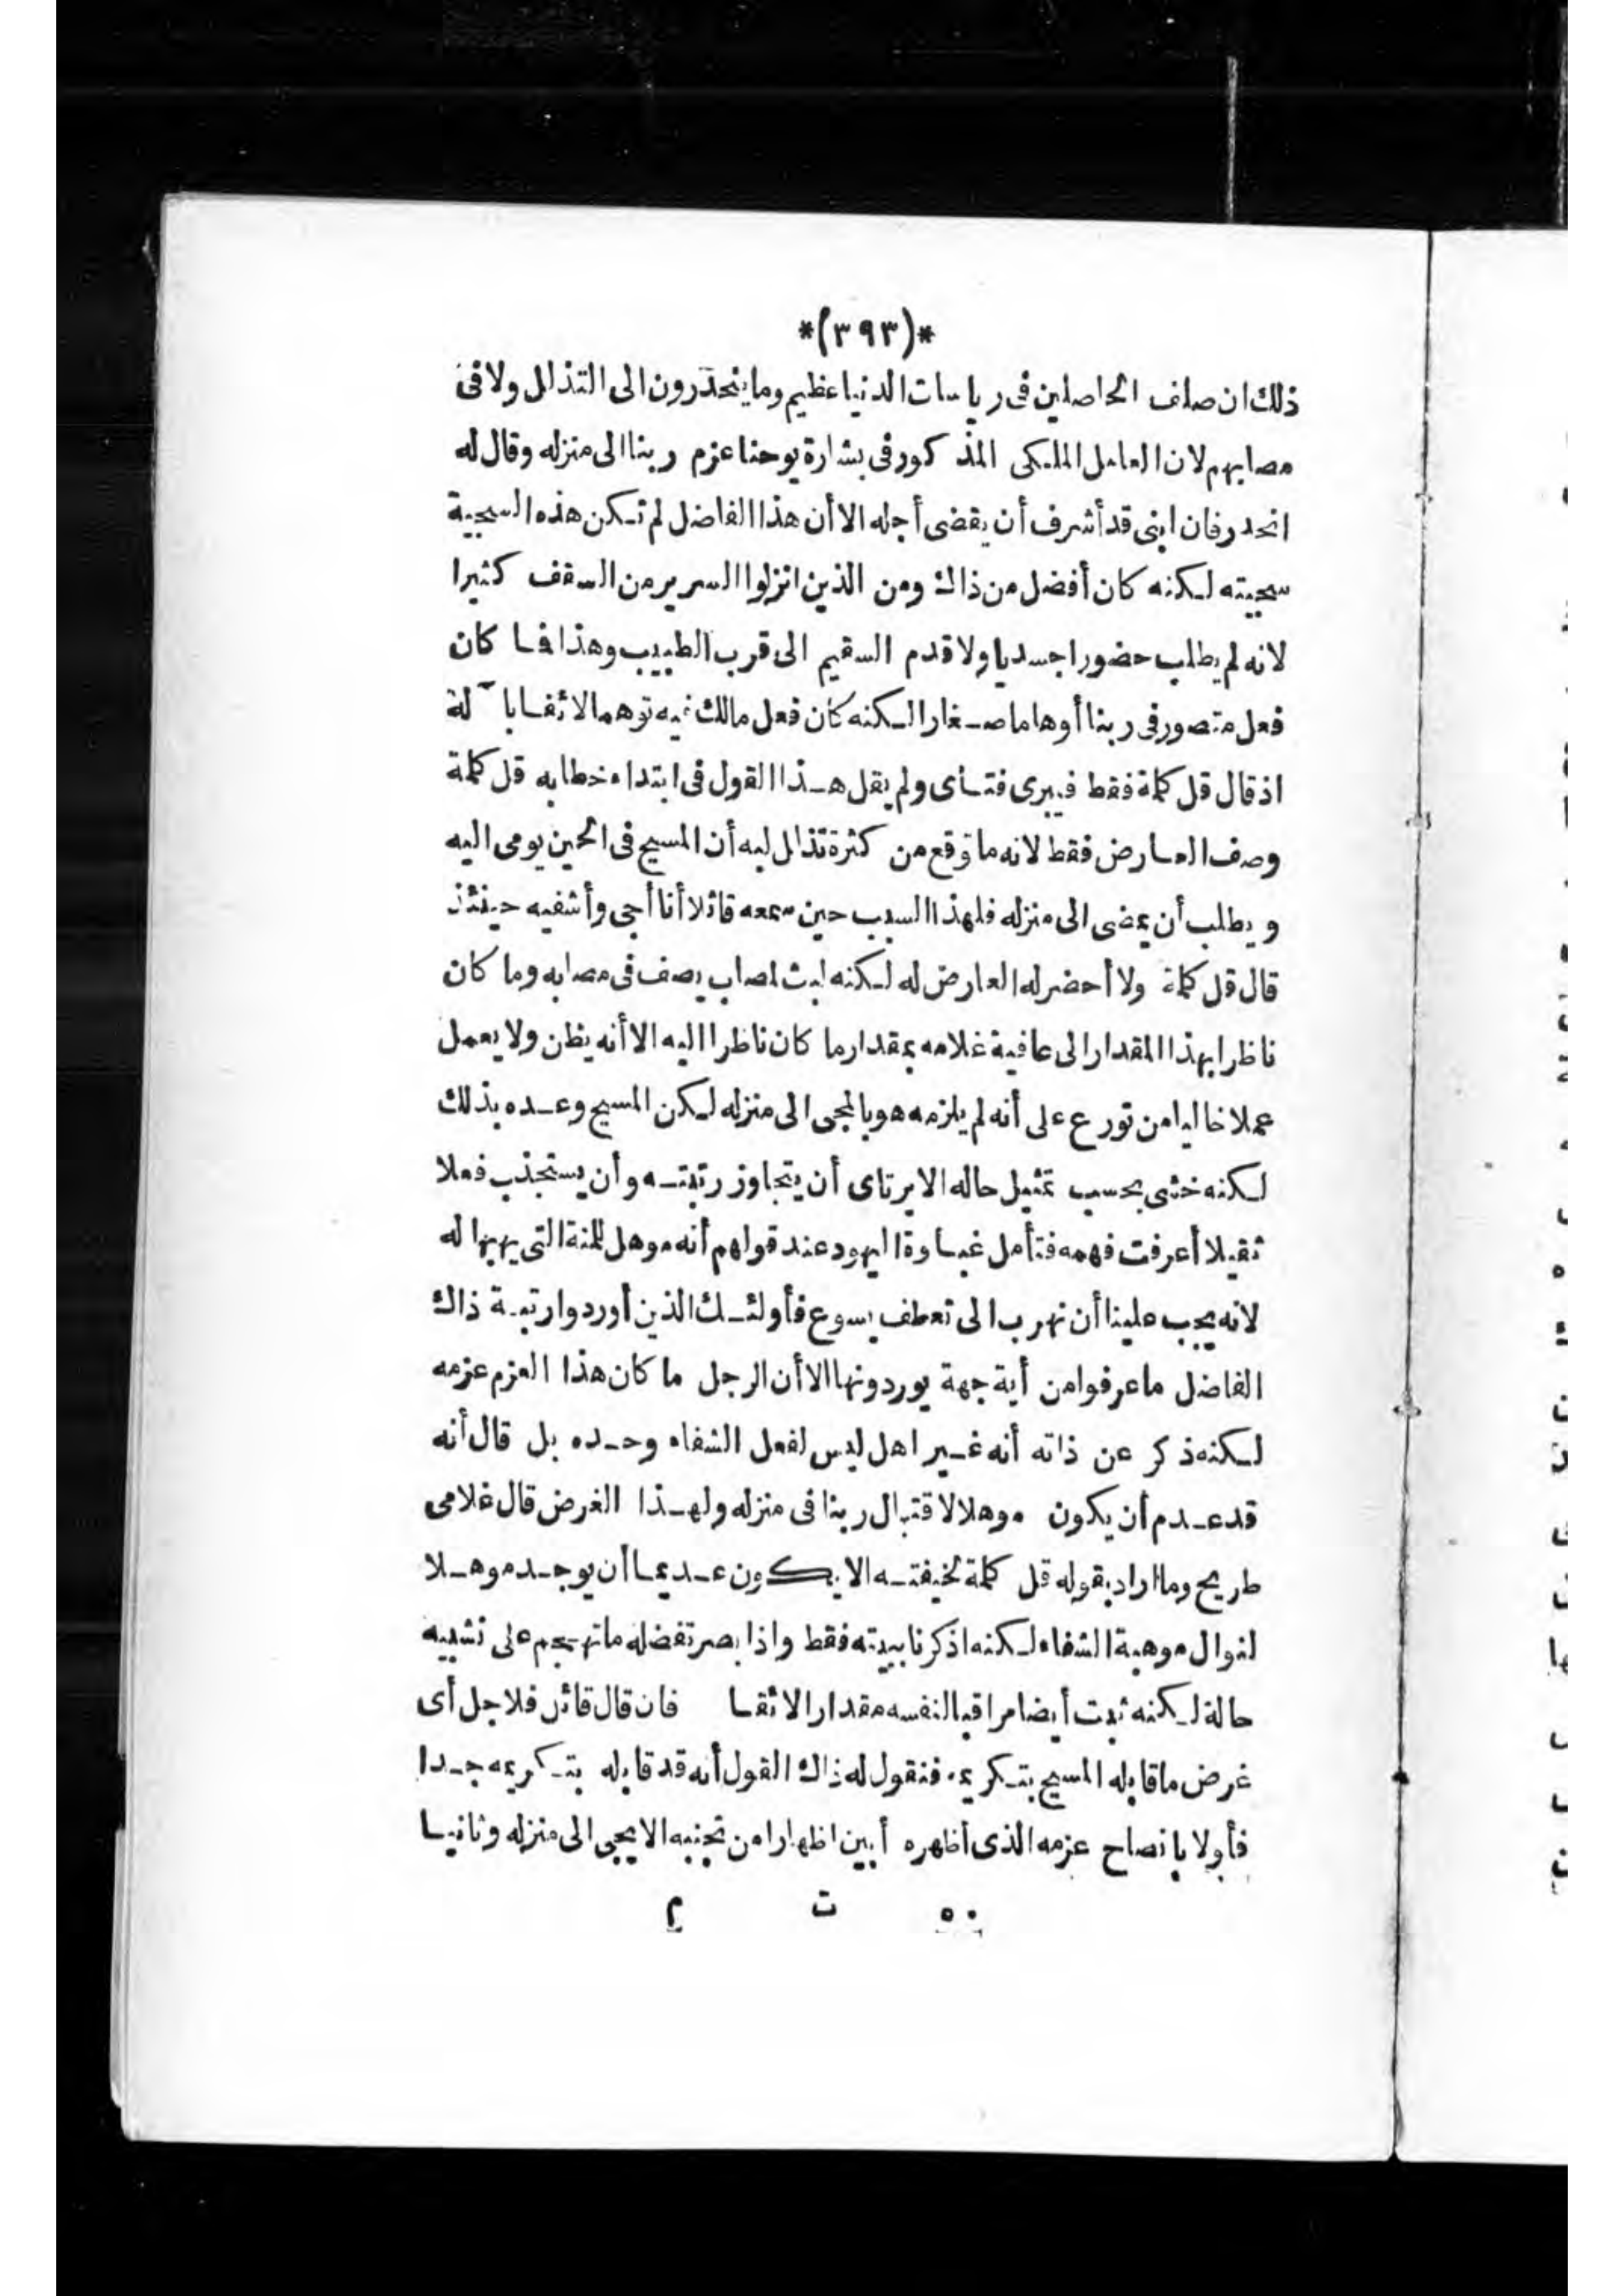 *(٣٩٣)*
ذلك ان صلف الحاصلين فى رياسات الدنيا عظيم وما ينحدرون الى التذلل ولا فى
مصابهم لان العامل الملكى المذكور فى بشارة يوحنا عزم ربنا الى منزله وقال له
انحدر فان ابنى قد أشرف أن يقضى أجله الا أن هذا الفاضل لم تكن هذه السجية
سجيته لكنه كان أفضل من ذاك ومن الذين انزلوا السرير من السقف كثيرا
لانه لم يطلب حضورا جسديا ولا قدم السقيم الى قرب الطبيب وهذا فما كان
فعل متصور فى ربنا أوهاما صغارا لكنه كان فعل مالك فيه توهما لائقا باله
اذ قال قل كلمة فقط فيبرى فتاى ولم يقل هذا القول فى ابتداء خطابه قل كلمة
وصف العارض فقط لانه ما توقع من كثرة تذلل لبه أن المسيح فى الحين يومى اليه
ويطلب أن يمضى الى منزله فلهذا السبب حين سمعه قائلا أنا أجى وأشفيه حينئذ
قال قل كلمة ولا أحضر له العارض له لكنه لبث لصاب يصف فى مصابه وما كان
ناظرا بهذا المقدار الى عافية غلامه بمقدار ما كان ناظرا اليه الا أنه يظن ولا يعمل
عملا خاليا من تورع على أنه لم يلزمه هو بالمجى الى منزله لكن المسيح وعده بذلك
لكنه خشى بحسب تمثيل حاله الا يرتاى أن يتجاوز رتبته وأن يستجذب فعلا
ثقيلا أعرفت فهمه فتأمل غباوة اليهود عند قولهم أنه موهل للمنة التى يهبها له
لانه يجب علينا أن نهرب الى تعطف يسوع فأولئك الذين أوردوا رتبة ذاك
الفاضل ما عرفوا من أية جهة يوردونها الا أن الرجل ما كان هذا العزم عزمه
لكنه ذكر عن ذاته أنه غير اهل ليس لفعل الشفاء وحده بل قال أنه
قد عدم أن يكون موهلا لاقتبال ربنا فى منزله ولهذا الغرض قال غلامى
طريح وما اراد بقوله قل كلمة لخيفته الا يكون عديما أن يوجد موهلا
لنوال موهبة الشفاء لكنه اذكرنا بيته فقط واذا بصر تفضله ما تهجم على تشبيه
حالة لكنه ثبت أيضا مراقبا لنفسه مقدار الا ئقا فان قال قائل فلاجل أى
غرض ما قابله المسيح بتكريمه فنقول له ذاك القول أنه قد قابله بتكريمه جدا
فأولا بانصاح عزمه الذى أظهره أبين اظهارا من تجنبه الا يجى الى منزله وثانيا
٥٠ ت م